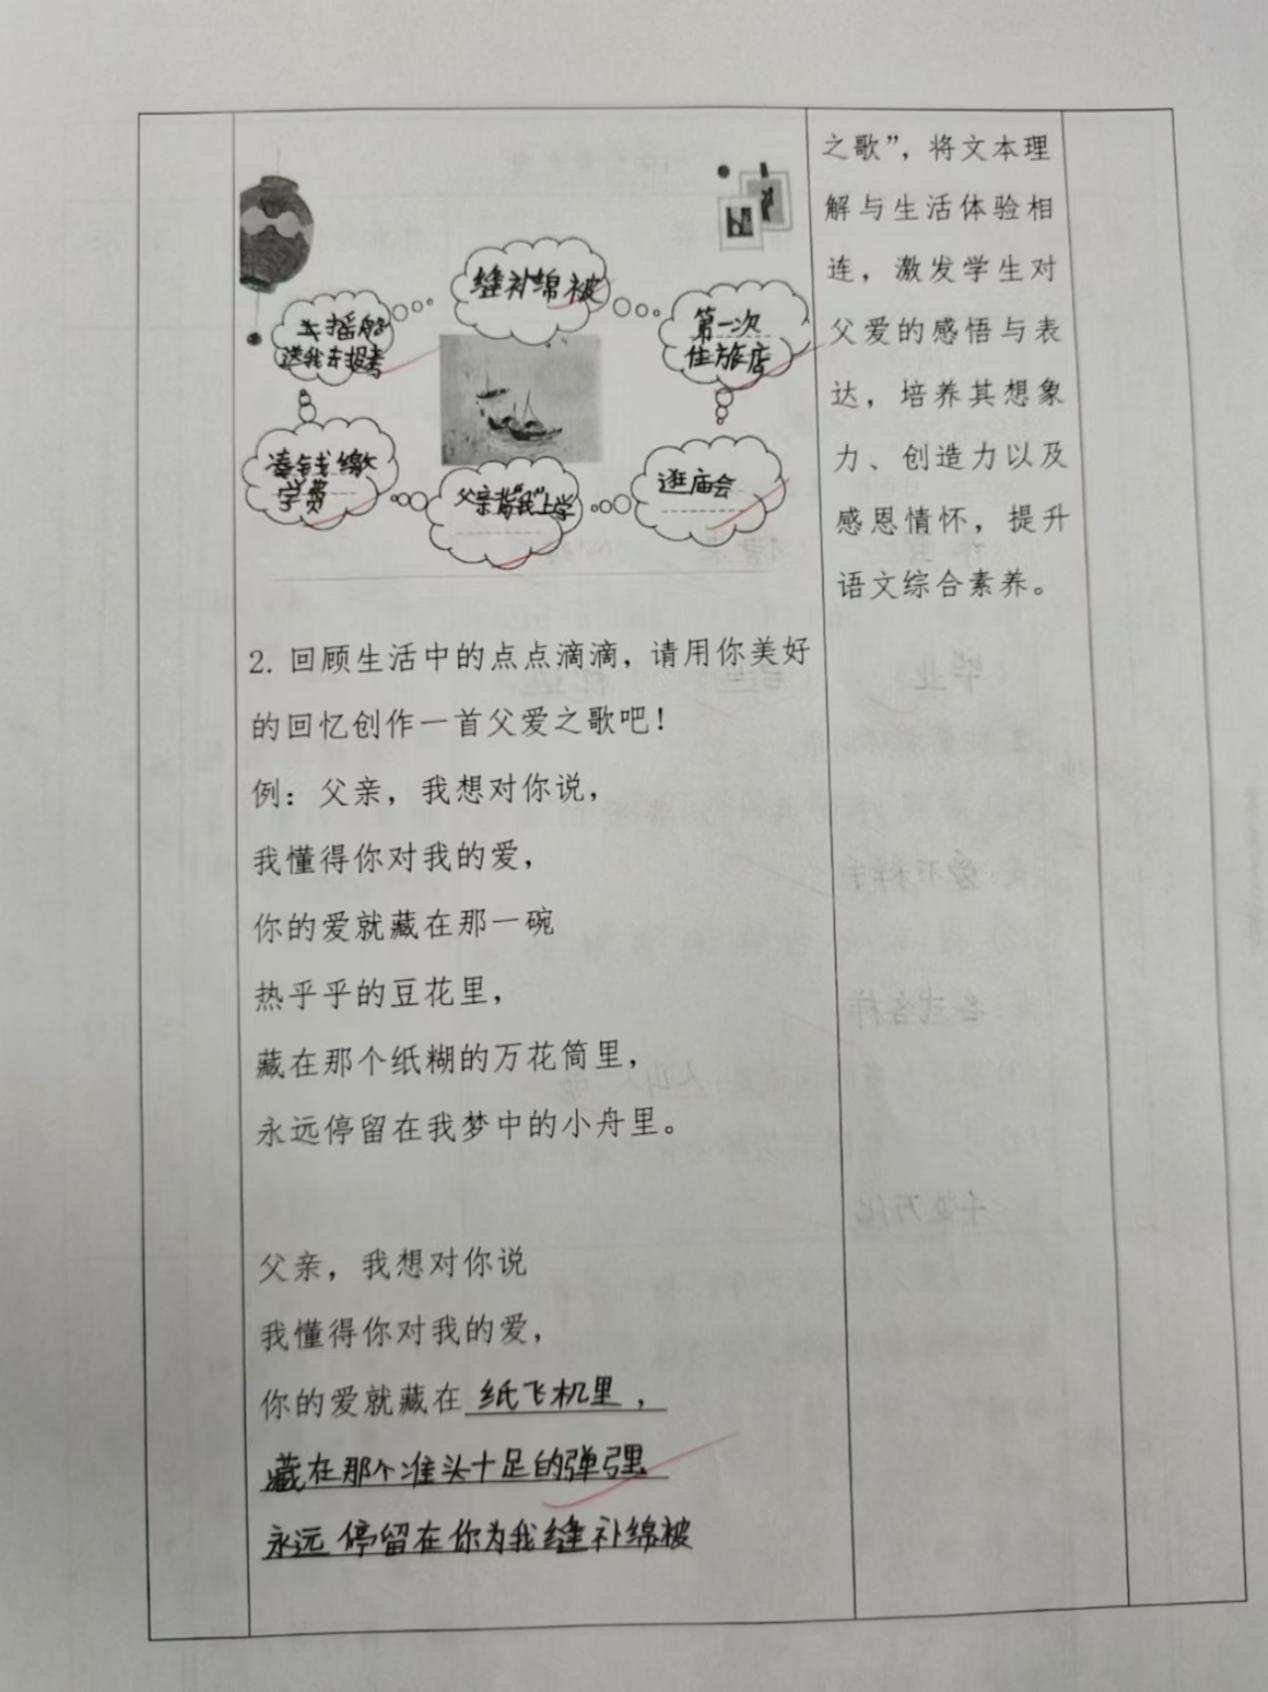 缝补绵被
第一次
住旅店
去摇船
送我去报考
凑钱缴
学费
父亲背"我"上学
逛庙会
2. 回顾生活中的点点滴滴，请用你美好
的回忆创作一首父爱之歌吧！
例：父亲，我想对你说，
我懂得你对我的爱，
你的爱就藏在那一碗
热乎乎的豆花里，
藏在那个纸糊的万花筒里，
永远停留在我梦中的小舟里。
父亲，我想对你说
我懂得你对我的爱，
你的爱就藏在纸飞机里，
藏在那个准头十足的弹弓里
永远停留在你为我缝补绵被
之歌”，将文本理
解与生活体验相
连，激发学生对
父爱的感悟与表
达，培养其想象
力、创造力以及
感恩情怀，提升
语文综合素养。